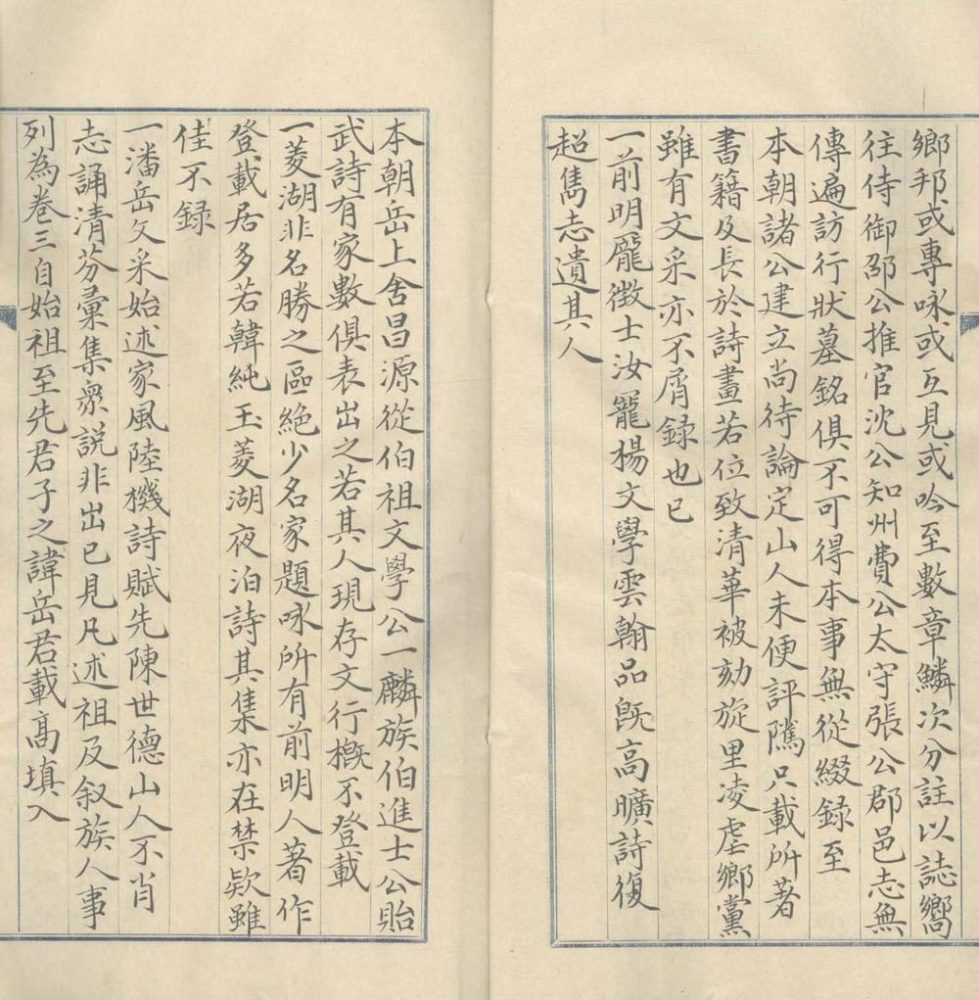 鄉邦或專咏或互見或吟至數章鱗次分註以誌嚮
往侍御邵公推官沈公知州費公太守張公郡邑志無
傳遍訪行狀墓銘俱不可得本事無從綴録至
本朝諸公建立尚待論定山人未便評隲只載所著
書籍及長於詩畫若位致清華被劾旋里凌虐鄉黨
雖有文采亦不屑録也已
一前明龎徵士汝寵楊文學雲翰品旣高曠詩復
超雋志遺其人
本朝岳上舍昌源從伯祖文學公一麟族伯進士公貽
武詩有家數俱表出之若其人現存文行槪不登載
一菱湖非名勝之區絶少名家題咏所有前明人著作
登載居多若韓純玉菱湖夜泊詩其集亦在禁欵雖
佳不録
一潘岳文采始述家風陸機詩賦先陳世德山人不肖
志誦清芬彙集衆説非出已見凡述祖及叙族人事
列為卷三自始祖至先君子之諱岳君載高填入